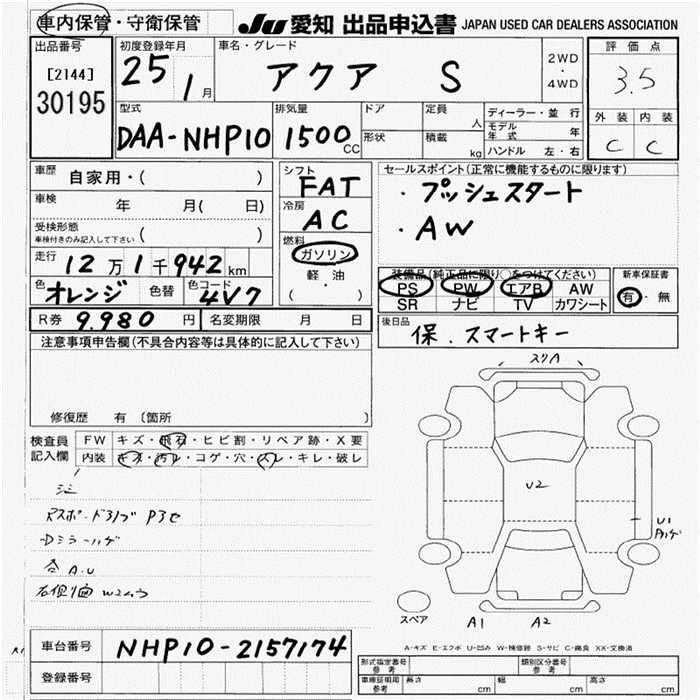 車内保管・守衛保管
JU 愛知 出品申込書 JAPAN USED CAR DEALERS ASSOCIATION
出品番号
[2144]
30195
初度登録年月
25 1月
車名・グレード
アクア S
2WD
・
4WD
評価点
3.5
外装 内装
C C
型式
DAA-NHP10
排気量
1500 CC
ドア
形状
定員 人
積載 kg
ディーラー・並行
モデル年式 年
ハンドル 左・右
車歴 自家用・( )
車検 年 月( 日)
受検形態
車検付きのみ記入して下さい ( )
走行 12万1千942km
色 オレンジ 色替 色コード 4V7
シフト
FAT
冷房
AC
燃料
ガソリン
軽・油
( ・ )
セールスポイント(正常に機能するものに限ります)
・プッシュスタート
・AW
装備品(純正品に限り○をつけてください)
PS PW エアB AW
SR ナビ TV カワシート
新車保証書
有・無
R券 9.980 円 名変期限 月 日
後日品 保.スマートキー
注意事項申告欄(不具合内容等は具体的に記入して下さい)
修復歴 有 〔箇所
検査員記入欄
FW キズ・飛石・ヒビ割・リペア跡・X要
内装 キズ・汚レ・コゲ・穴・スレ・キレ・破レ
スリA
U2
U1
A1 A2
スペア
A-キズ E-エクボ U-凹み W-補修跡 S-サビ C-腐食 XX-交換済
車台番号 NHP10-2157174
登録番号
形式指定番号 参考
類別区分番号 参考
車庫証明用 参考 長さ cm 幅 cm 高さ cm